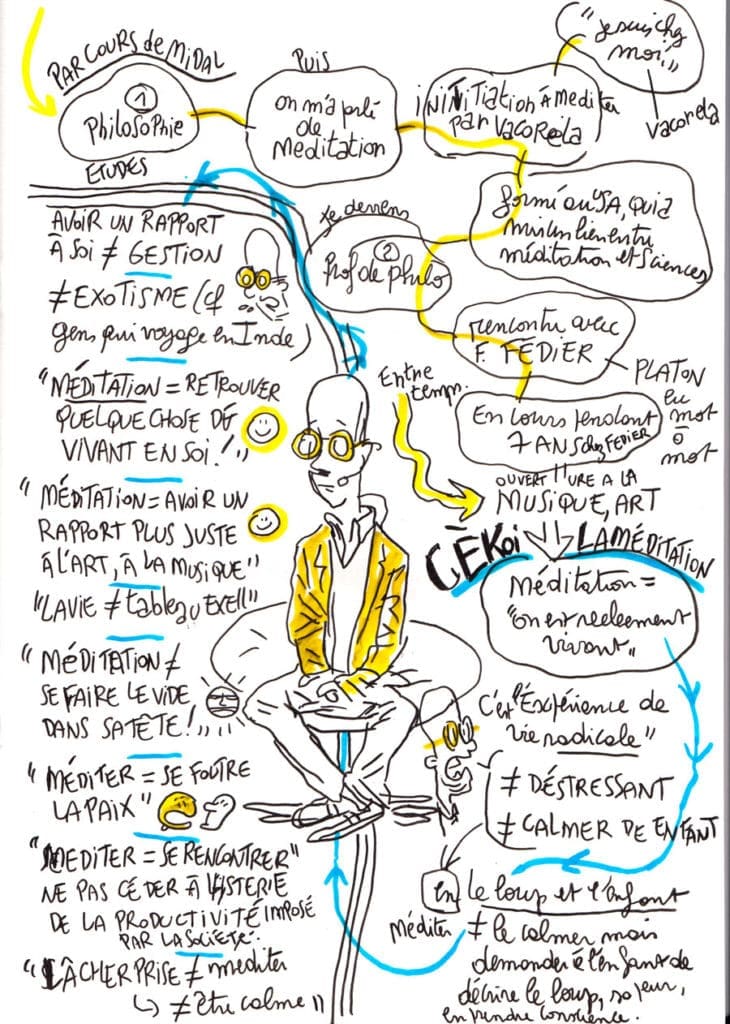 PARCOURS de MIDAL
①
PhiloSoPhie
ETUDES
Puis
on m'a parlé
de
Meditation
iNiTiation à Mediter
par Vacorela
"Je suis chez
moi!"
Vacorela
formé au USA, qui a
mis un lien entre
méditation et Sciences
Je deviens
②
Prof de Philo
rencontre avec
F. FÉDIER
PLATON
mot
à
mot
En cours pendant
7 ANS chez FÉDIER
Entre
temps.
MUSIQUE, ART
CÈKoi LA MÉDITATION
Méditation =
"on est reelement
vivant"
C'est "Expérience de
vie radicale"
≠ DÉSTRESSANT
≠ CALMER DE ENFANT
le loup et l'enfant
Méditer ≠ le calmer mais
demander à l'enfant de
décrire le loup, sa peur,
en prendre conscience.
AVOIR UN RAPPORT
À SOI ≠ GESTION
≠ EXOTISME (cf
gens qui voyage en Inde)
"MÉDITATION = RETROUVER
QUELQUE CHOSE DE
VIVANT EN SOI!"
"MÉDITATION = AVOIR UN
RAPPORT PLUS JUSTE
À L'ART, À LA MUSIQUE"
"LA VIE ≠ tableau EXELL"
"MÉDITATION ≠
SE FAIRE LE VIDE
DANS SA TÊTE!"
"MÉDITER = SE FOUTRE
LA PAIX"
"MEDITER = SE RENCONTRER"
NE PAS CÉDER À L'HISTERIE
DE LA PRODUCTIVITÉ IMPOSÉ
PAR LA SOCIÉTÉ.
"LÂCHER PRISE ≠ mediter
↳ ≠ être calme"